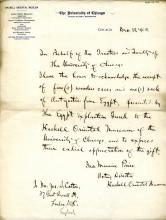 The University of Chicago
CHICAGO
In Behalf of the Trustees and Faculty of
the University of Chicago
I have the honor to acknowledge the receipt
of four (4) wooden cases and one (1) sack
of Antiquities from Egypt, presented by
the Egypt Exploration Fund to the
Haskell Oriental Museum of the
University of Chicago, and to express
their cordial appreciation of the gift.
Ira Maurice Price
Acting Director
Haskell Oriental Museum
37 Great Russell St,
London
England